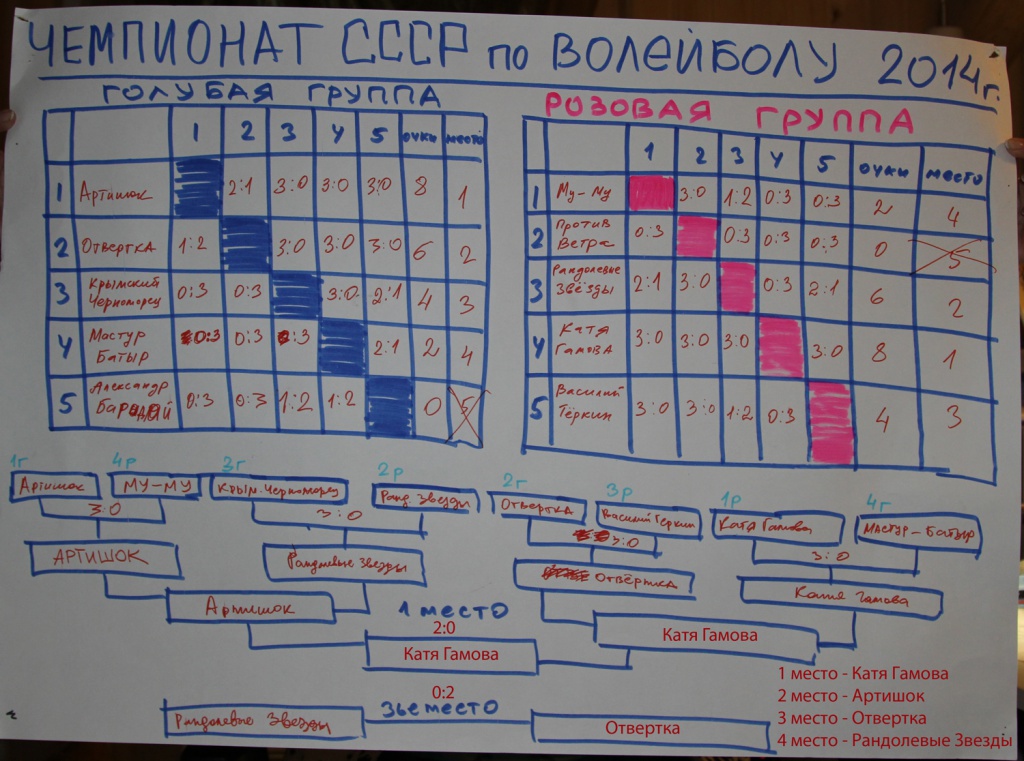 ЧЕМПИОНАТ СССР по ВОЛЕЙБОЛУ 2014г.
ГОЛУБАЯ ГРУППА
1 2 3 4 5 очки место
1 Артишок 2:1 3:0 3:0 3:0 8 1
2 Отвертка 1:2 3:0 3:0 3:0 6 2
3 Крымский Черноморец 0:3 0:3 3:0 2:1 4 3
4 Мастур Батыр 0:3 0:3 0:3 2:1 2 4
5 Александр Бородай 0:3 0:3 1:2 1:2 0 5
РОЗОВАЯ ГРУППА
1 2 3 4 5 очки место
1 Му-Му 3:0 1:2 0:3 0:3 2 4
2 Против Ветра 0:3 0:3 0:3 0:3 0 5
3 Рандолевые Звёзды 2:1 3:0 0:3 2:1 6 2
4 Катя Гамова 3:0 3:0 3:0 3:0 8 1
5 Василий Тёркин 3:0 3:0 1:2 0:3 4 3
1г 4р 3г 2р 2г 3р 1р 4г
Артишок МУ-МУ Крым.Черноморец Ранд Звезды Отвертка Василий Теркин Катя Гамова Мастур-Батыр
3:0 3:0 3:0 3:0
АРТИШОК Рандолевые Звезды Отвёртка Катя Гамова
Артишок 1 место Катя Гамова
2:0
Катя Гамова
0:2
Рандолевые Звезды 3ье место Отвертка
1 место - Катя Гамова
2 место - Артишок
3 место - Отвертка
4 место - Рандолевые Звезды